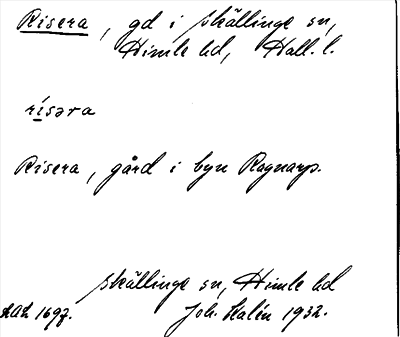 Risera, gd i Skällinge sn,
Himle hd, Hall. l.
rísəra
Risera, gård i byn Ragnarp.
Skällinge sn, Himle hd
LAL 1697.
Joh. Kalén 1932.